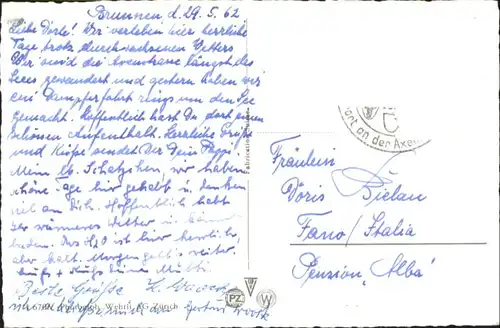 Brunnen, d. 29.5.62
Liebe Doris! Wir verleben hier herrliche
Tage trotz durchwachsenen Wetters
Wir sind die Axenstrasse längst des
Sees gewandert und gestern haben wir
ein Dampferfahrt rings um den See
gemacht. Hoffentlich hast Du dort einen
schönen Aufenthalt. Herzliche Grüße
und Küsse sendet Dir Dein Pappi
Mein lb. Schatzchen, wir haben
schöne Tage hier gehabt u. denken
viel an Dich. Hoffentlich habt
Ihr wärmeres Wetter u. könnt
baden. Das H2O ist hier herrlich,
aber kalt. Morgen geht's weiter.
Gruß + Küsse Deine Mutti
Beste Grüße
Fräulein
Doris Bielau
Fano/Italia
Pension „Alba"
an der Axen
PZ
W